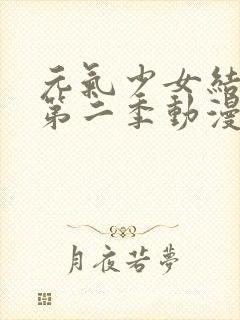 元氣少女結
第二季動漫
月夜若夢